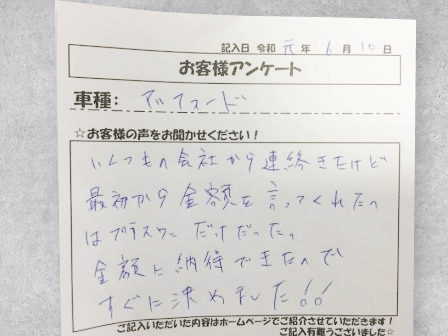 記入日 令和 元 年 6 月 10 日
お客様アンケート
車種: アルファード
☆お客様の声をお聞かせください!
いくつもの会社から連絡きたけど
最初から金額を言ってくれたの
はプラスワン だけだった。
金額に納得できたので
すぐに決めました!!
ご記入いただいた内容はホームページでご紹介させていただきます!
ご記入有難うございました☆